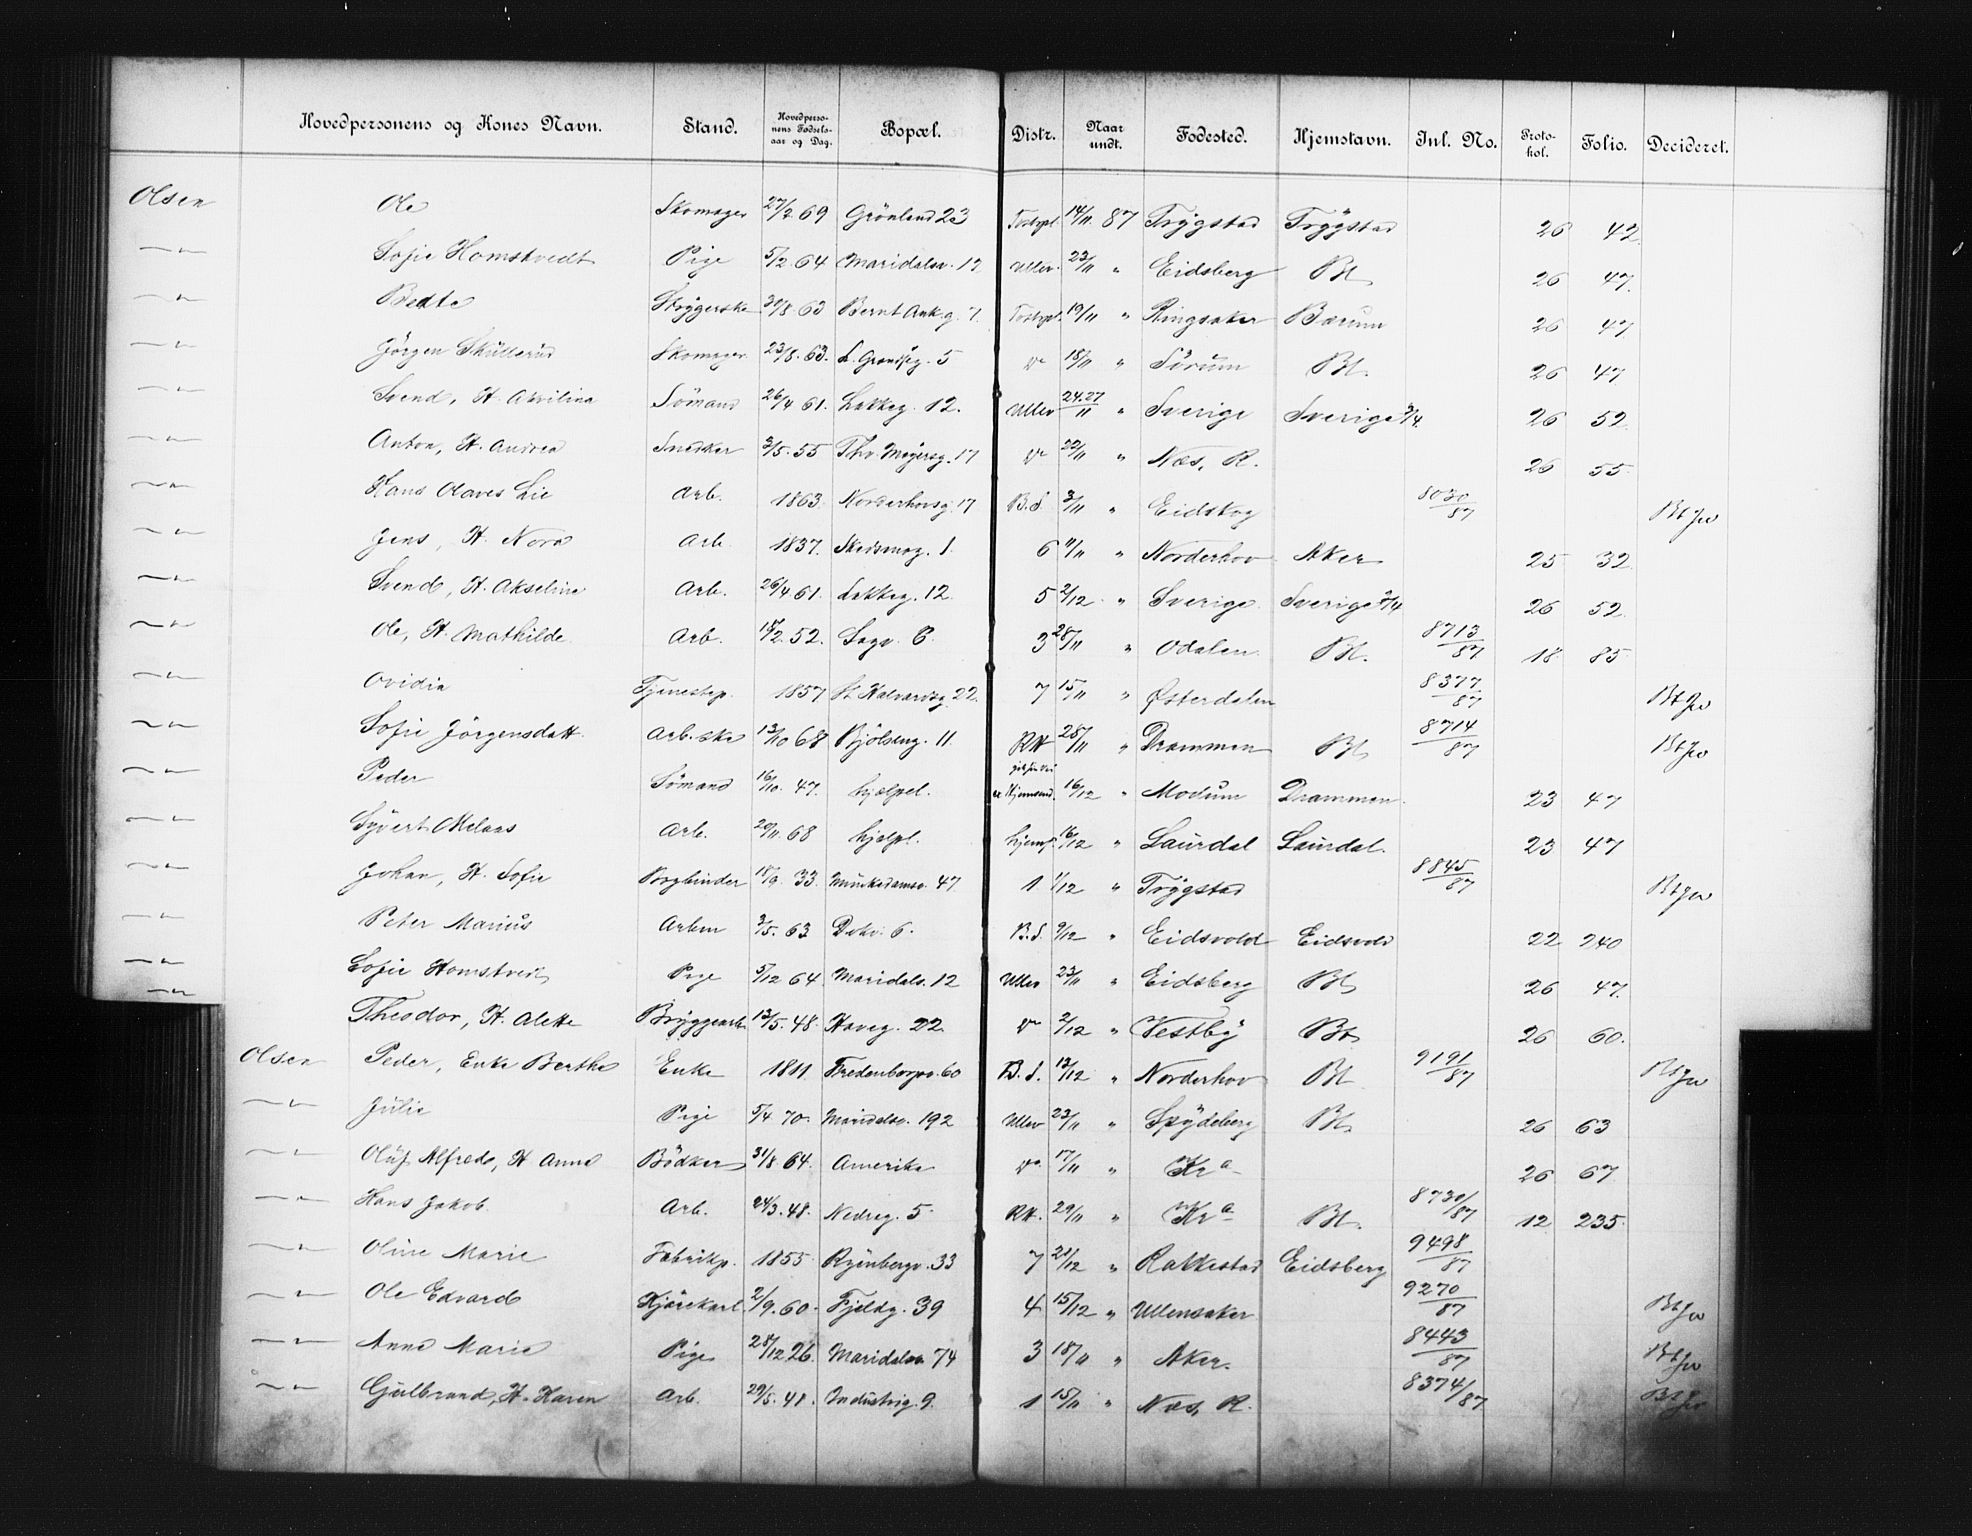 Hovedpersonens og Kones Navn. Stand. Hovedpersonens Fødselsaar og Dag. Bopæl. Distr. Naar undt. Fødested. Hjemstavn. Inl. No. Protokol. Folio. Decideret.
Olsen Ole Skomager 27/2 69 Grönland 23 14/11 87 Trygstad Trygstad 26 42
—"— Sofie Homstvedt Pige 5/2 64 Maridalsv. 12 Ullev. 23/11 " Eidsberg Bt. 26 47.
—"— Strygerske 63 Bernt Ank.g. 7. 19/11 " Ringsaker Bærum 26 47
—"— Jörgen Skullerud Skomager 23/8. 63. 5 18/11 " Sörum Bt. 26 47
—"— Svend, H. Sömand 26/4 61. Lakkeg. 12. Ullev 24.27/11 " Sverige Sverige 26 52
—"— Anton, H. Andrea Snedker 3/5. 55 Thv. Meyersg. 17 22/11 " Næs, R. 26 55
—"— Hans Olaves Lie Arb. 1863. Norderhovsg. 17 B.S. 3/11 " Eidskog 8030/87
—"— Jens, H. Nora Arb. 1837. Skedsmog. 1. 6 11/11 " Norderhov Aker 25 32
—"— Svend, H. Akseline Arb. 26/4 61. Lakkeg. 12. 5 2/12 " Sverige Sverige 2/4 26 52
—"— Ole, H. Mathilde Arb. 52. Sagv. 6. 3 28/11 " Odalen Bt. 8713/87 18 85
—"— Ovidia Tjenestep. 1857 St. Halvardsg. 22. 7 15/11 " Østerdalen 8377/87
—"— Sofie Jörgensdatt. Arb.ske 13/10 68 Bjölseng. 11. RH 25/11 " Drammen Bt. 8714/87
—"— Peder Sömand 16/10. 47. hjælpel. 16/12 " Modum Drammen 23 47
—"— Syvert Arb. 20/11. 68 hjælpl. hjemf. 16/12 " Laurdal Laurdal. 23 47
—"— Johan, H. Sofie Bogbinder 18/9. 33. Munkedamsv. 47. 1 1/12 " Trygstad 8845/87
—"— Peter Marius Arbm 3/5. 63 6. B.S. 9/12 " Eidsvold Eidsvold 22 240
—"— Sofie Homstvedt Pige 5/12 64 Maridalsv. 12 Ullev 23/11 " Eidsberg Bt. 26 47.
—"— Theodor, H. Alette Bryggearb. 13/5. 48. Haveg. 22 2/12 " Vestby Bt. 26 60.
Olsen Peder, Enke Berthe Enke 1811. Fredensborgv. 60 B.S. 13/12 " Norderhov Bt. 9191/87
—"— Julie Pige 5/4 70. Maridalsv. 192 Ullev 23/11 " Spydeberg Bt. 26 63
—"— Oluf Alfred, H. Anna Bödker 31/8. 64. Amerika 17/11 " Kra 26 67
—"— Hans Jakob. Arb. 24/3. 48. Nedreg. 5. RH. 29/11 " Kra Bt. 8730/87 12 235.
—"— Oline Marie Fabrikp. 1855. Ryenbergv. 33 7 21/12 " Rakkestad Eidsberg 9498/87
—"— Ole Edvard Kjörekarl 2/9. 60. Fjeldg. 39 4 15/12 " Ullensaker 9270/87
—"— Anne Marie Pige 28/12 26. Maridalsv. 74 3 18/11 " Aker. 8443/87
—"— Gulbrand, H. Karen Arb. 29/5. 48. Industrig. 9. 1 15/11 " Næs, R. 8374/87